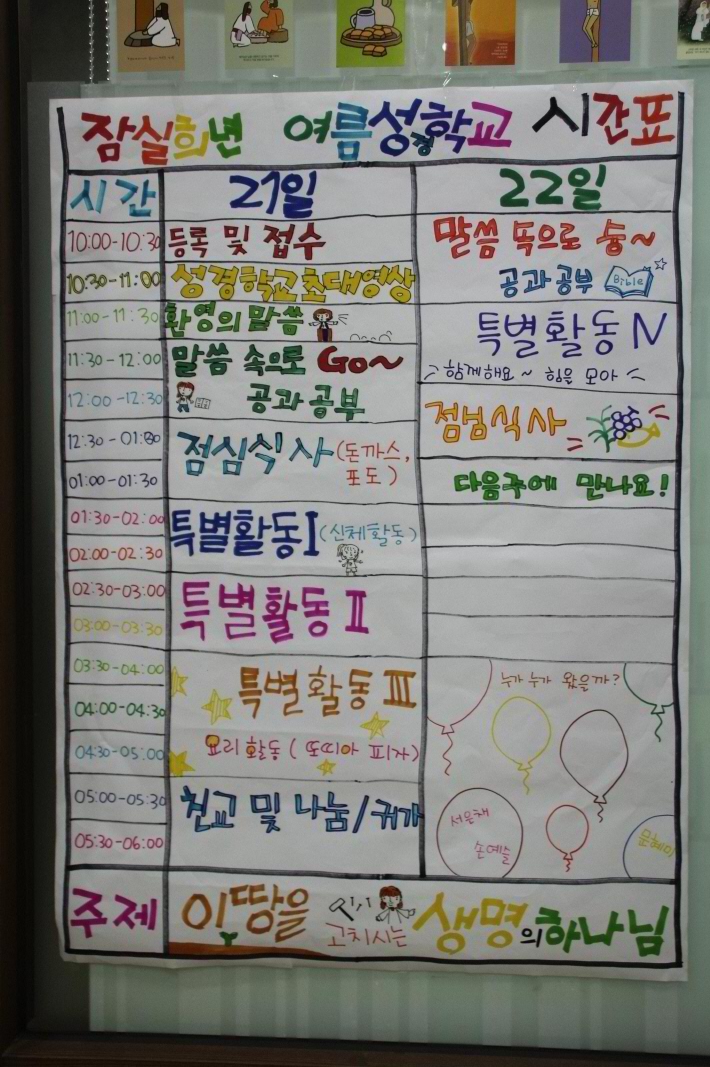 잠실희년 여름성경학교 시간표
시간 21일 22일
10:00-10:30 등록 및 접수
말씀 쏙으로 슝~
10:30-11:00 성경학교초대영상
공과공부 Bible
11:00-11:30 환영의 말씀
특별활동 IV
11:30-12:00 말씀 속으로 Go~
함께해요~ 힘을 모아~
12:00-12:30 공과공부
점심식사
12:30-01:00 점심식사 (돈까스,
포도)
01:00-01:30
다음주에 만나요!
01:30-02:00 특별활동 I (신체활동)
02:00-02:30
02:30-03:00 특별활동 II
03:00-03:30
03:30-04:00 특별활동 III
누가 누가 왔을까?
04:00-04:30
04:30-05:00 요리활동 (또띠아 피자)
05:00-05:30 친교 및 나눔/귀가
서은채
손예슬
05:30-06:00
주제 이땅을 고치시는 생명의하나님